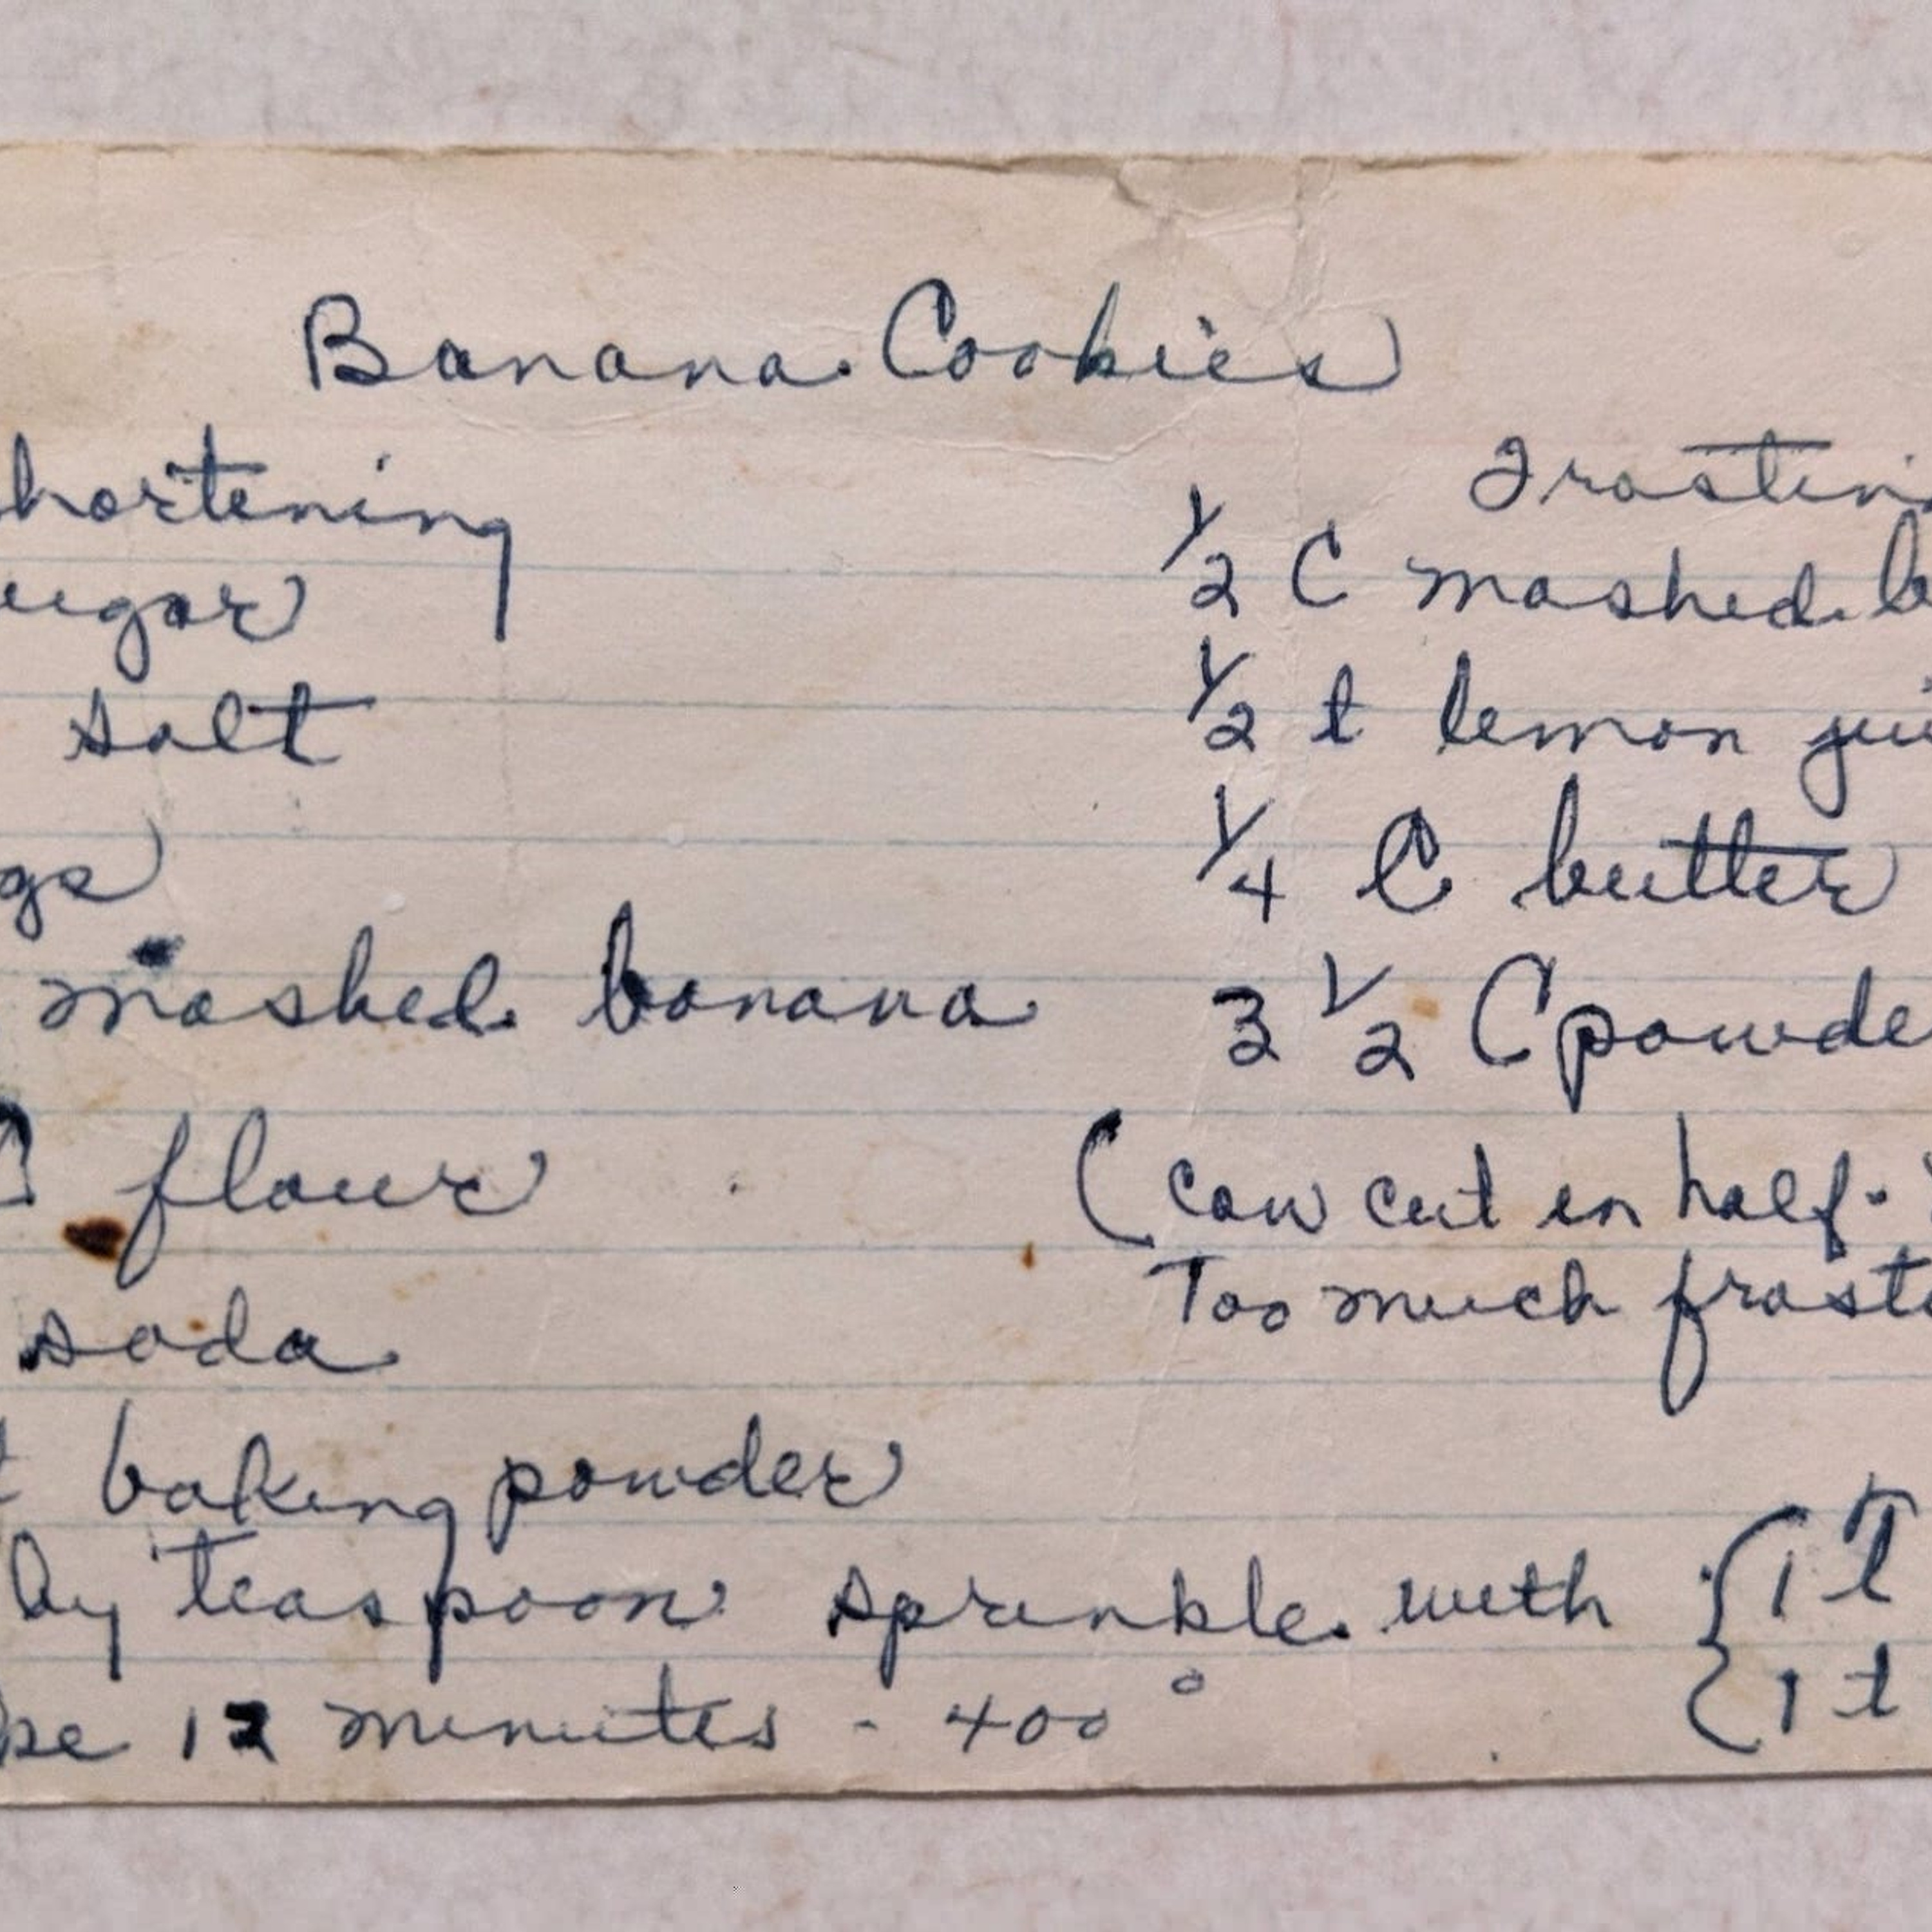 Banana Cookies
hortening
ugar
salt
gs
mashed banana
C flour
soda
t baking powder
by teaspoon sprinkle with { 1 T
ke 12 minutes - 400° { 1 t
Frostin
1/2 C mashed b
1/2 t lemon jui
1/4 C butter
3 1/2 C powde
(can cut in half.
Too much frost